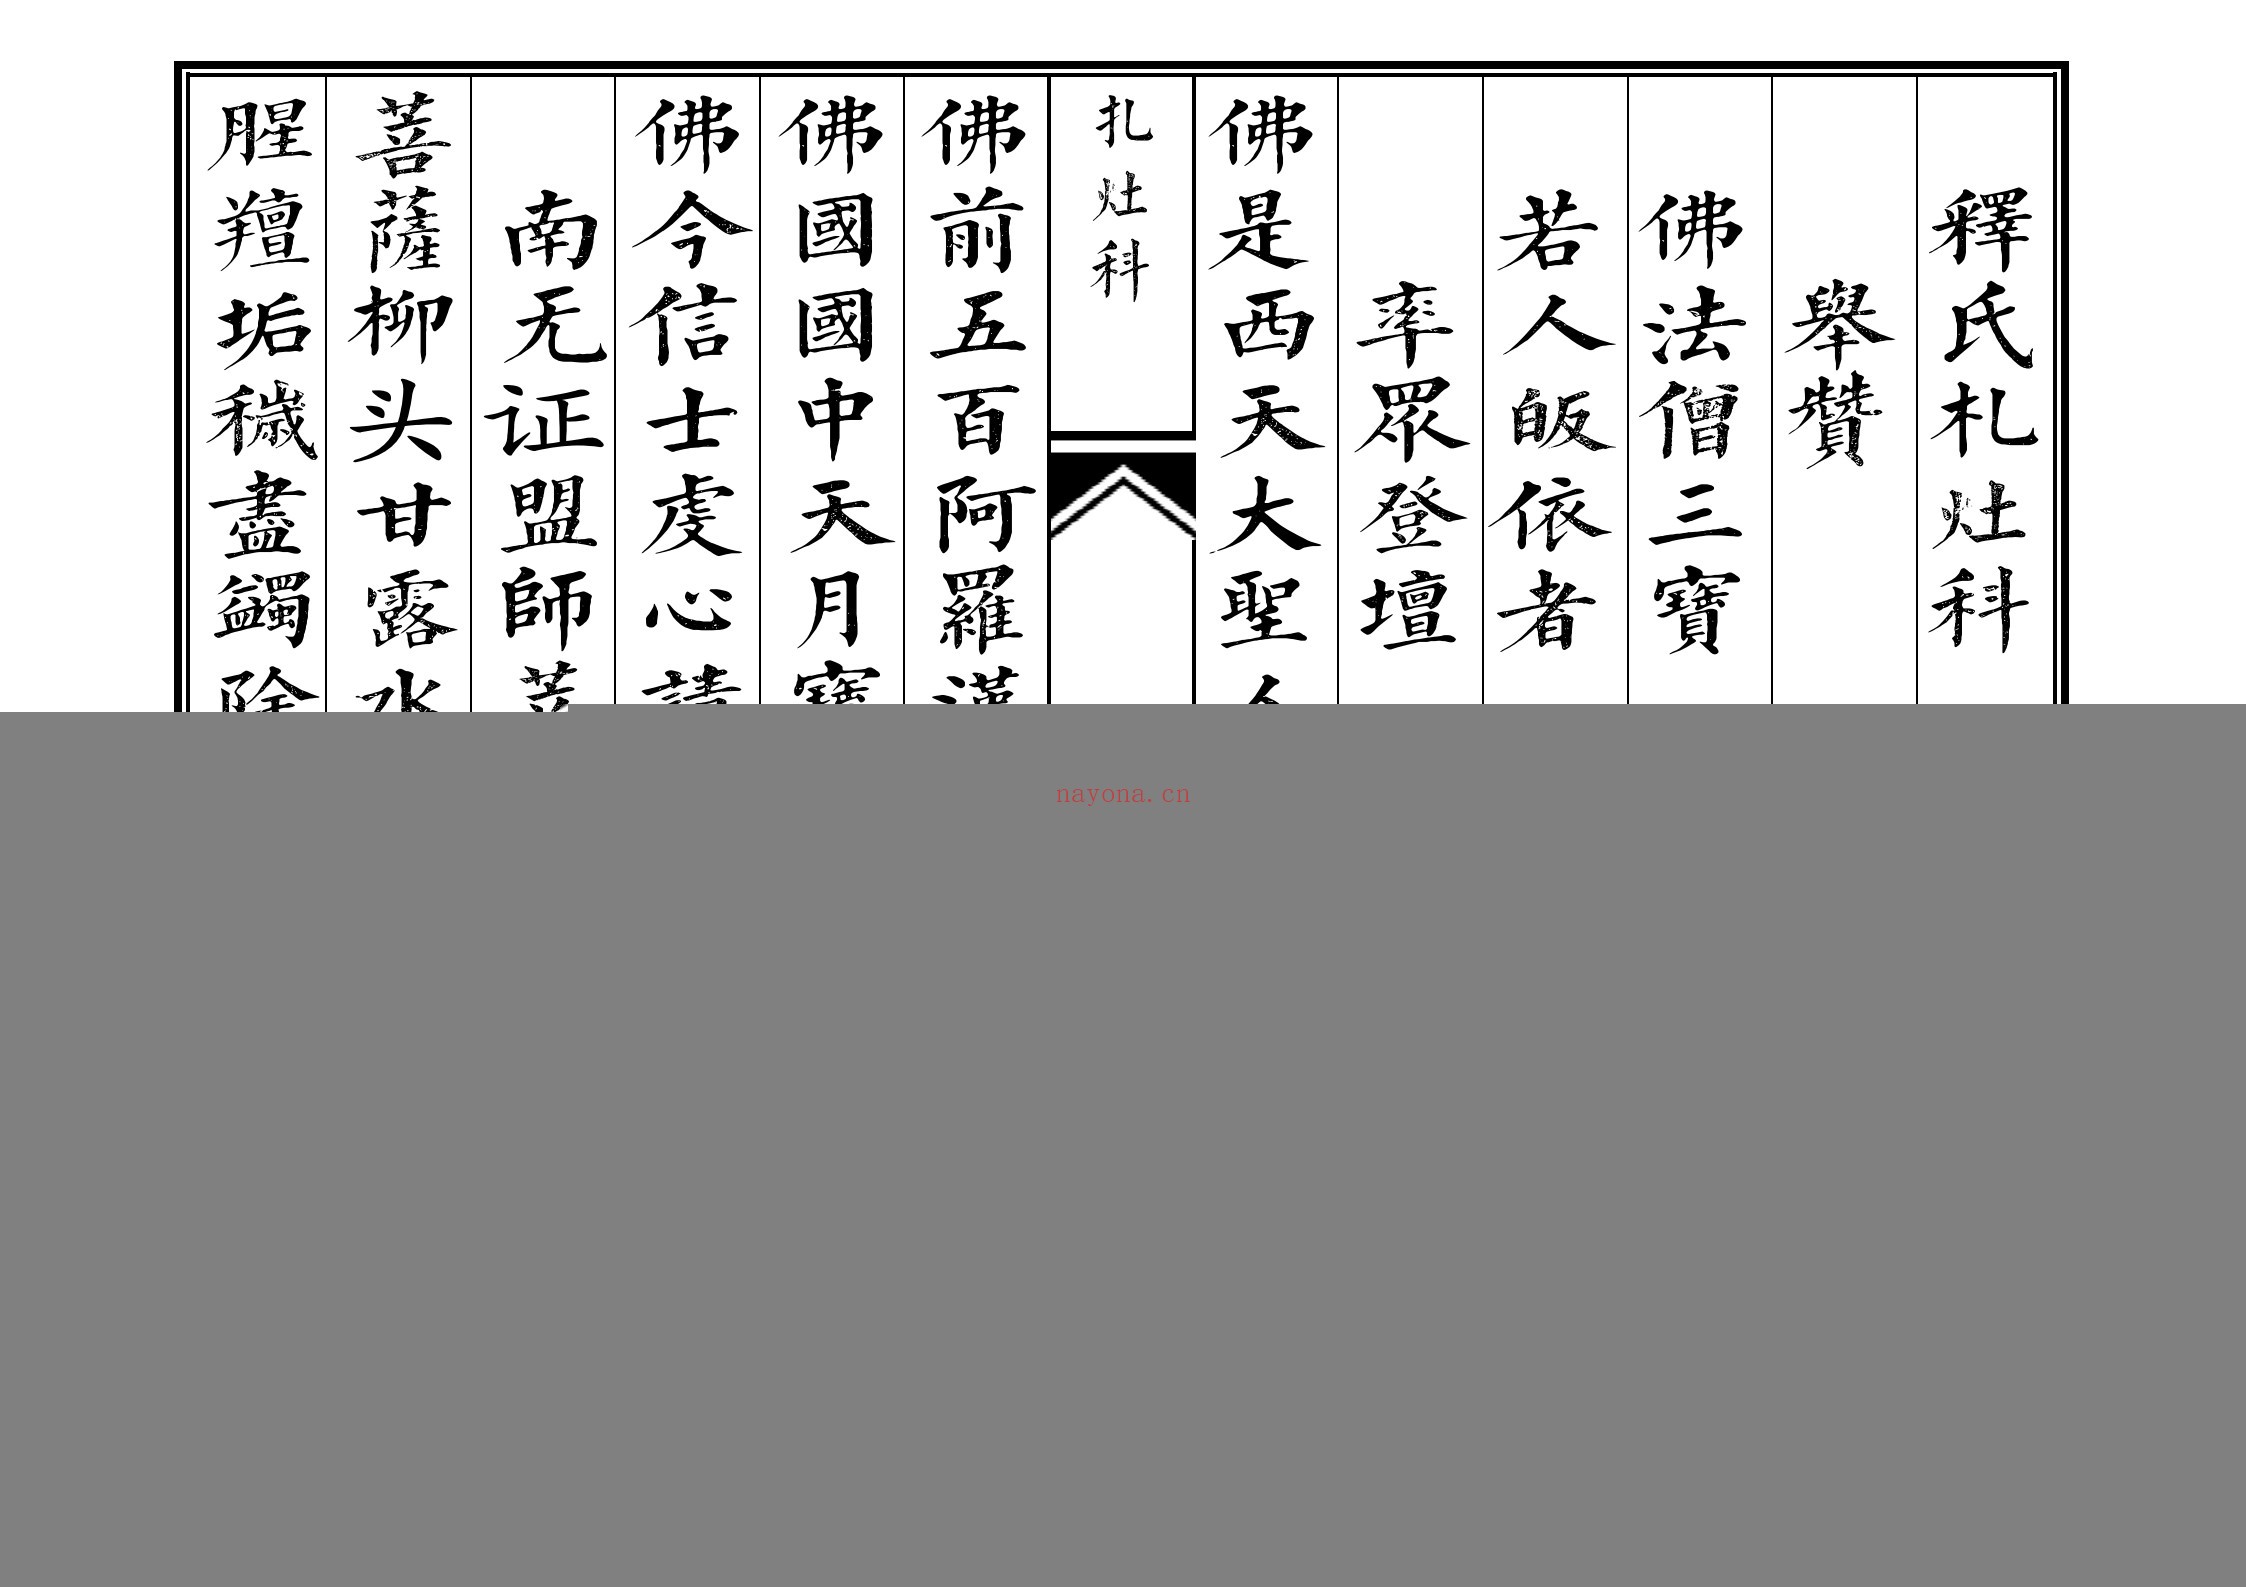 釋氏札灶科
舉贊
佛法僧三寶
若人皈依者
率眾登壇
佛是西天大聖人
扎灶科
佛前五百阿羅漢
佛國國中天月寶
佛今信士虔心請
南无证盟師菩
菩薩柳头甘露水
腥羶垢穢盡蠲除
nayona.cn